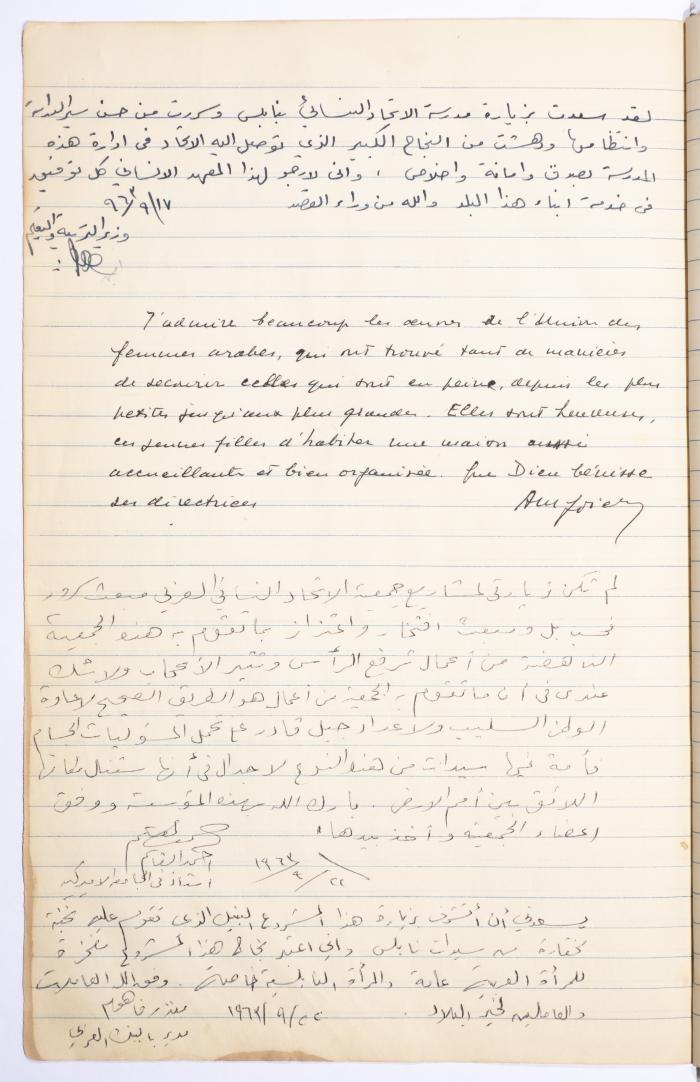 لقد سعدت بزيارة مدرسة الاتحاد النسائي بنابلس وسررت من حسن سير الدراسة
وانتظامها ودهشت من النجاح الكبير الذي توصل اليه الاتحاد في ادارة هذه
المدرسة بصدق وامانة واخلاص ، واني لارجو لهذا المعهد الانساني كل توفيق
في خدمة ابناء هذا البلد والله من وراء القصد
وزير التربية والتعليم
J'admire beaucoup les œuvres de l'Union des
femmes arabes, qui ont trouvé tant de manières
de secourir celles qui sont en peine, depuis les plus
petites jusqu'aux plus grandes. Elles sont heureuses,
ces jeunes filles d'habiter une maison aussi
accueillante et bien organisée. Que Dieu bénisse
ses directrices
لم تكن زيارتي لمشاريع جمعية الاتحاد النسائي العربي مبعث سرور
فحسب بل ومبعث افتخار واعتزاز بما تقوم به هذه الجمعية
الناهضة من أعمال ترفع الرأس وتثير الاعجاب ولا شك
عندي في أن ما تقوم به الجمعية من أعمال هو الطريق الصحيح لإعادة
الوطن السليب ولاعداد جيل قادر على تحمل المسؤوليات الجسام
فأمة فيها سيدات من هذا النوع لا جدال في أنها ستنال مكانها
اللائق بين أمم الارض . بارك الله بهذه المؤسسة ووفق
اعضاء الجمعية وأخذ بيدها .
٢٢/٩/١٩٦٣
أستاذ في الجامعة الاميركية
يسعدني أن أتشرف بزيارة هذا المشروع النبيل الذي تقوم عليه نخبة
مختارة من سيدات نابلس واني اعتبر نجاح هذا المشروع مفخرة
للمرأة العربية عامة والمرأة النابلسية خاصة . وفق الله العاملات
والعاملين لخير البلاد . ٢٢/٩/١٩٦٣ منذر فاهوم
مدير بالبنك العربي